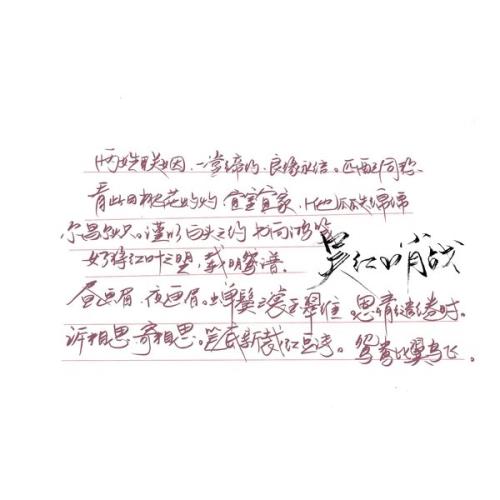 两姓联姻，一堂缔约，良缘永结。匹配同称。
看此日桃花灼灼 宜室宜家，卜他 瓜瓞绵绵
尔昌尔炽。谨以白头之约 书向鸿笺
好将红叶之盟，载明鸳谱。
昼画眉，夜画眉。蝉鬓 思情缱绻时。
诉相思，寄相思。笺 新裁红豆 。鸳鸯比翼鸟飞。